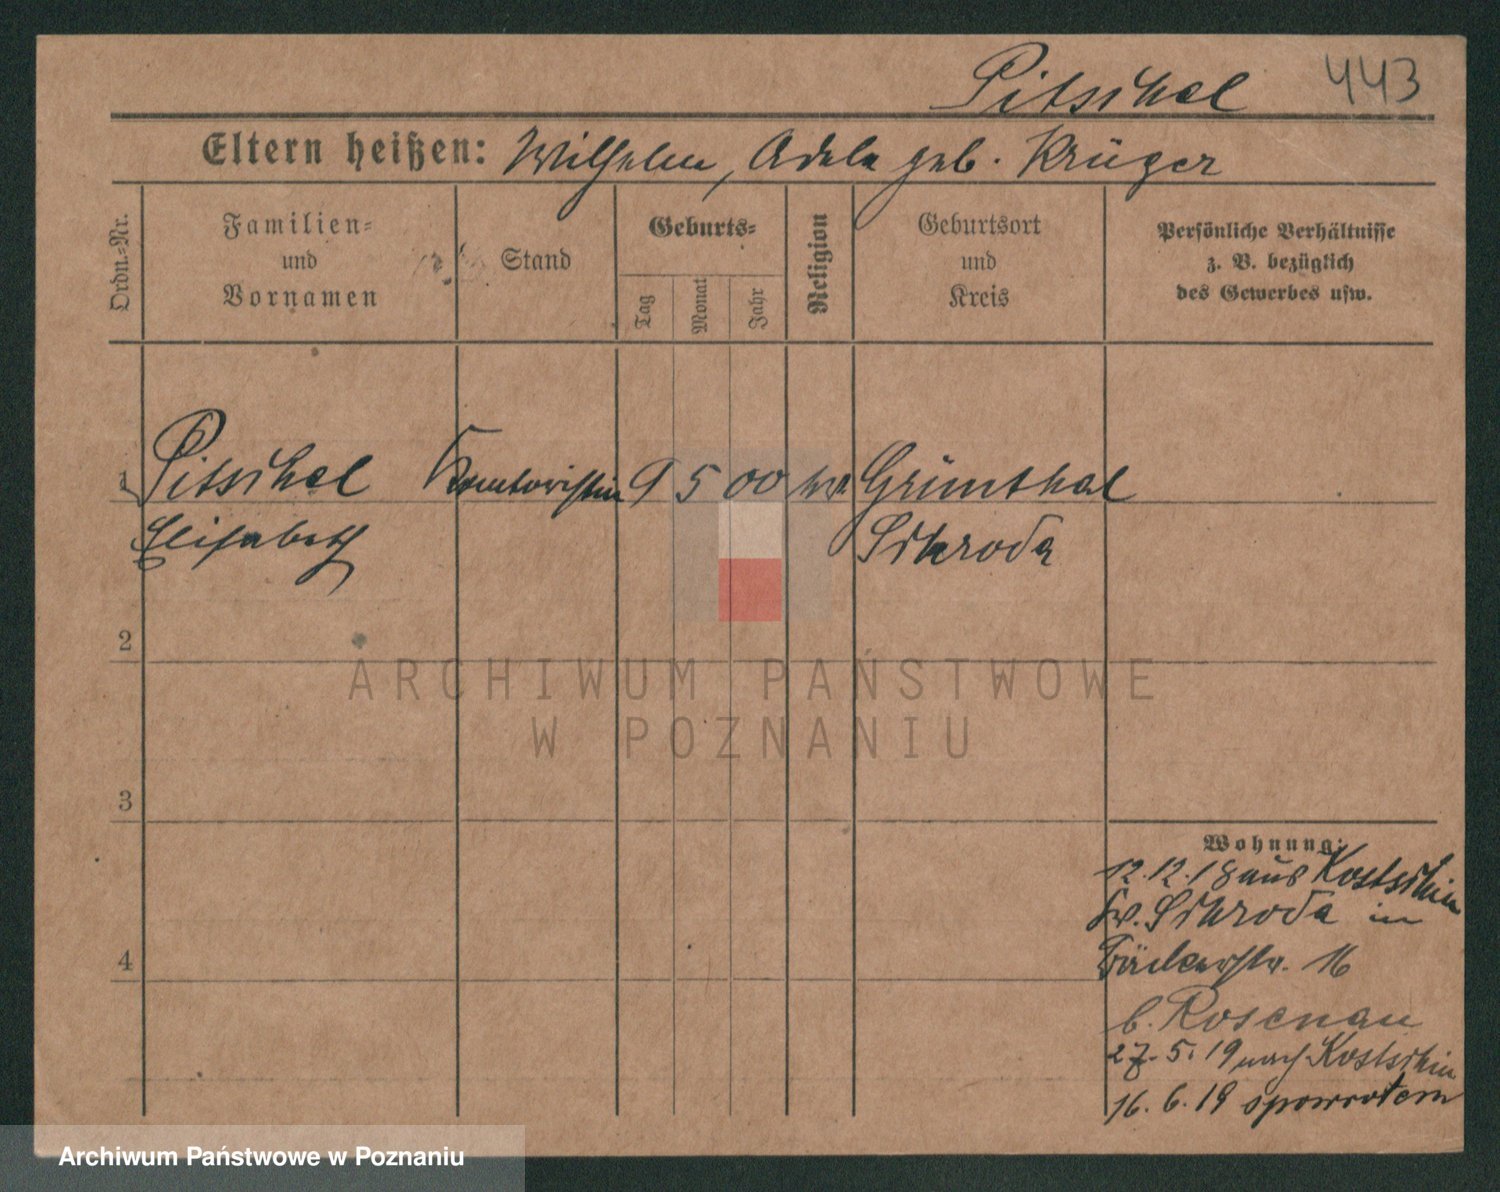 Pitschel 443
Eltern heißen: Wilhelm, Adele geb. Krüger
Ordn.-Nr.
Familien-
und
Vornamen
Stand
Geburts-
Tag
Monat
Jahr
Religion
Geburtsort
und
Kreis
Persönliche Verhältnisse
z. B. bezüglich
des Gewerbes usw.
1 Pitschel Kontoristin 9 5 00 ev Grünthal
Elisabeth Schroda
2
ARCHIWUM PAŃSTWOWE
W POZNANIU
3
Wohnung:
12.12.18 aus Kostschin
Kr. Schroda in
4 Bäckerstr. 16
b. Rosenau
27. 5. 19 nach Kostschin
16. 6. 19 spowrotem
Archiwum Państwowe w Poznaniu